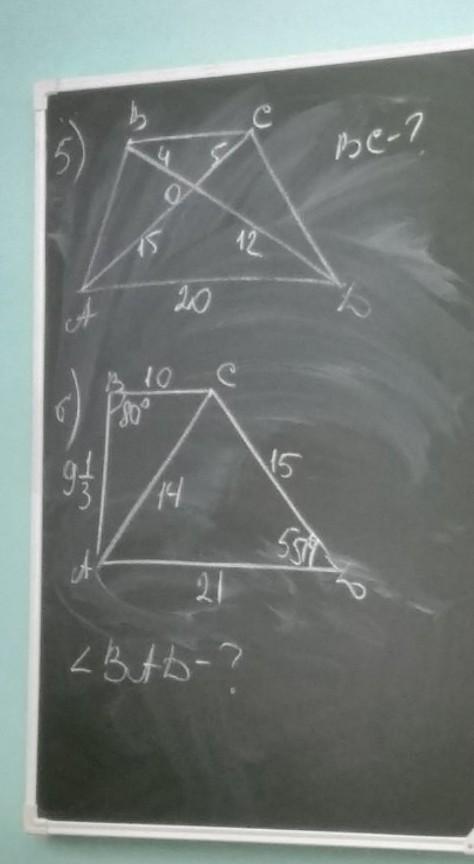 5)
B C
BC-?
4 5
O
15 12
A 20 D
6)
B 10 C
80°
9 1/3
14 15
A 21 D
∠BAD-?